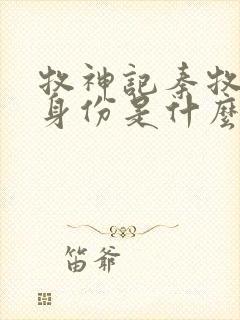 牧神記秦牧
身份是什麼
笛爺